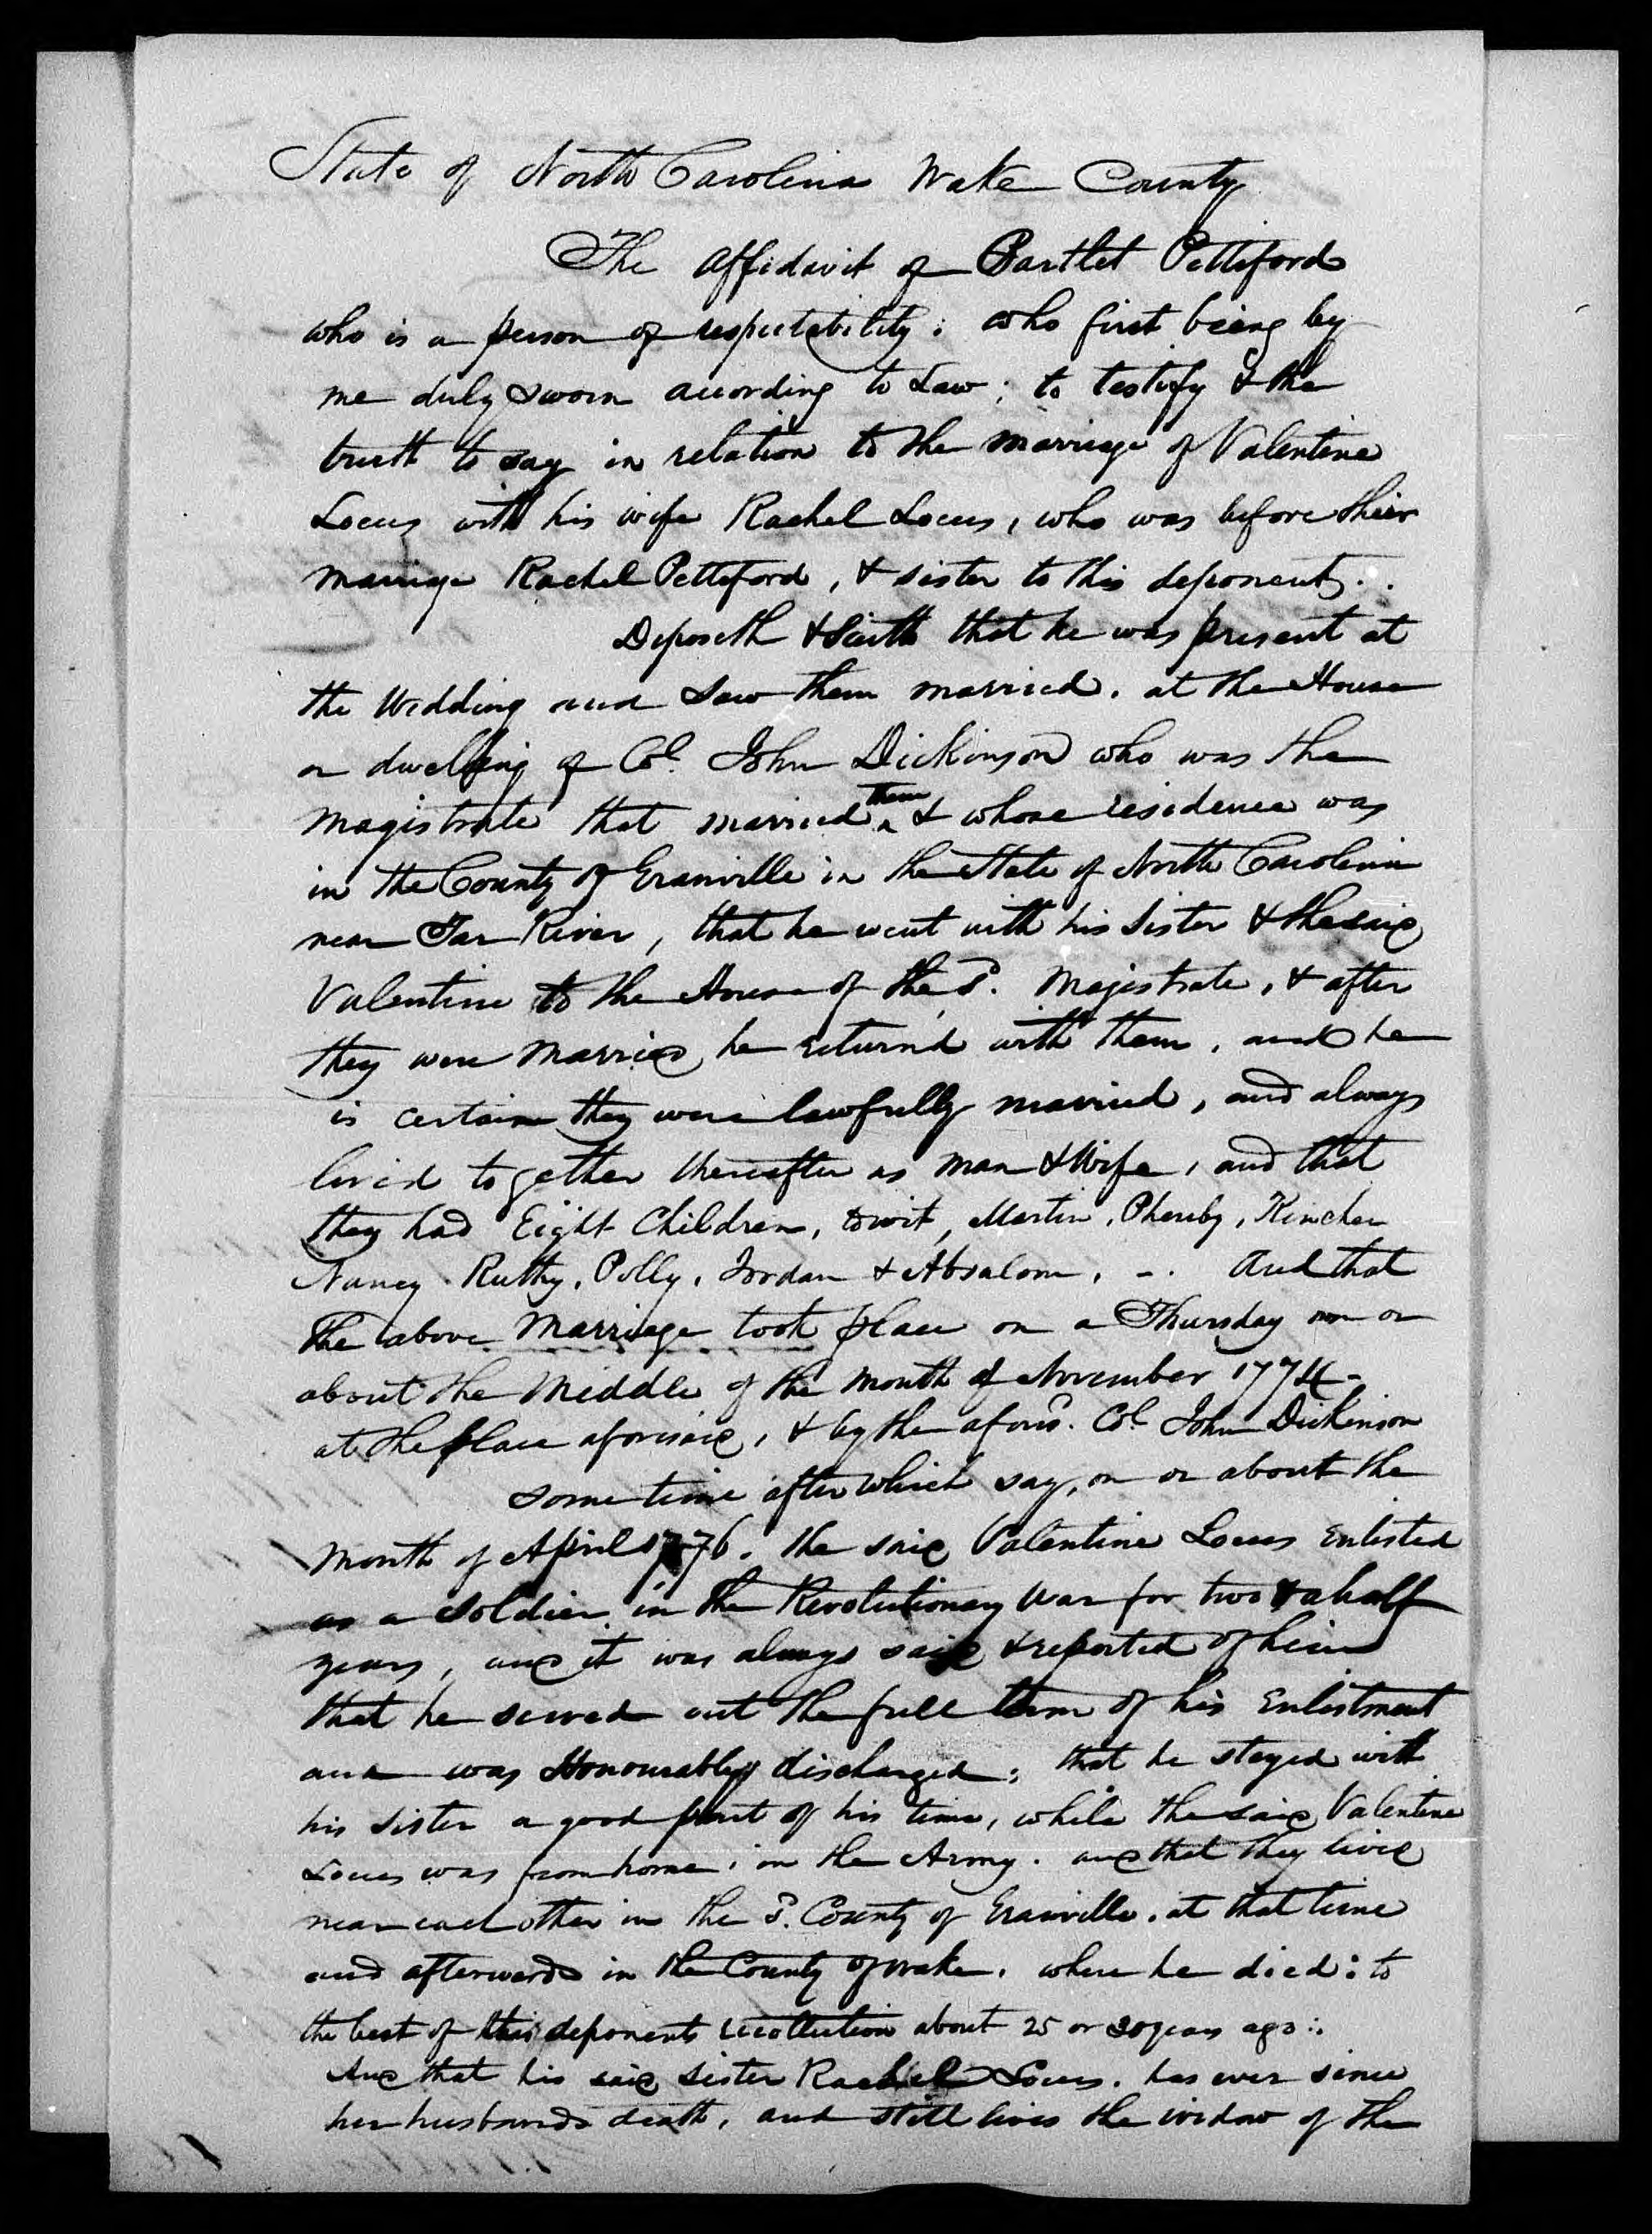 State of North Carolina Wake County
The affidavit of Bartlet Pettiford
who is a person of respectability; who first being by
me duly sworn according to Law; to testify & the
truth to say in relation to the marriage of Valentine
Locus with his wife Rachel Locus, who was before thier
marriage Rachel Pettiford, & sister to this deponent..
Deposeth & Saith that he was present at
the Wedding and Saw them married. at the House
or dwelling of Col. John Dickinson who was the
magistrate that married them & whose residence was
in the County of Granville in the State of North Carolina
near Tar River, that he went with his Sister & the said
Valentine to the House of the sd. Majistrate, & after
they were Married he returnd with them, and he
is certain they were lawfully married, and always
lived together thereafter as man & Wife, and that
they had Eight Children, towit, Martin, Phereby, Kinchen
Nancy. Ruthy, Polly, Jordan & Absalom. -. And that
the above Marriage took place on a Thursday on or
about the Middle of the month of November 1774-
at the place aforesaid, & by the aforsd. Col. John Dickinson
some time after which say, on or about the
month of April 1776. the said Valentine Locus Enlisted
as a Soldier in the Revolutionary War for two & a half
years, and it was always said & reported of him
that he served out the full term of his Enlistment
and was Honourably discharged; that he stayed with
his sister a good part of his time, while the said Valentine
Locus was from home, in the Army. and that they lived
near each other in the sd. County of Granville, at that time
and afterwards in the County of Wake. where he died: to
the best of this deponents recollection about 25 or 30 years ago:.
And that his said sister Rachel Locus. has ever since
her husbands death, and still lives the widow of the